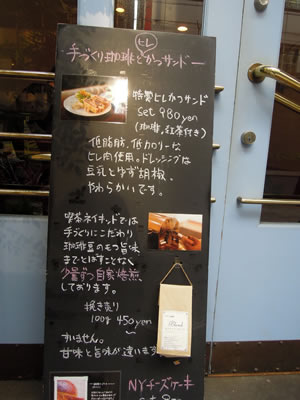 手づくり珈琲とヒレかつサンド
特製ヒレかつサンド
set 980yen
(珈琲、紅茶付き)
低脂肪、低カロリーな
ヒレ肉使用。ドレッシングは
豆乳とゆず胡椒。
やわらかいです。
喫茶ネイキッドでは
手づくりにこだわり
珈琲豆のもつ旨味
までとばすことなく
少量ずつ自家焙煎
しております。
挽き売り
100g 450yen
すいません。
甘味と旨味が違います
Blend
NYチーズケーキ
set 8